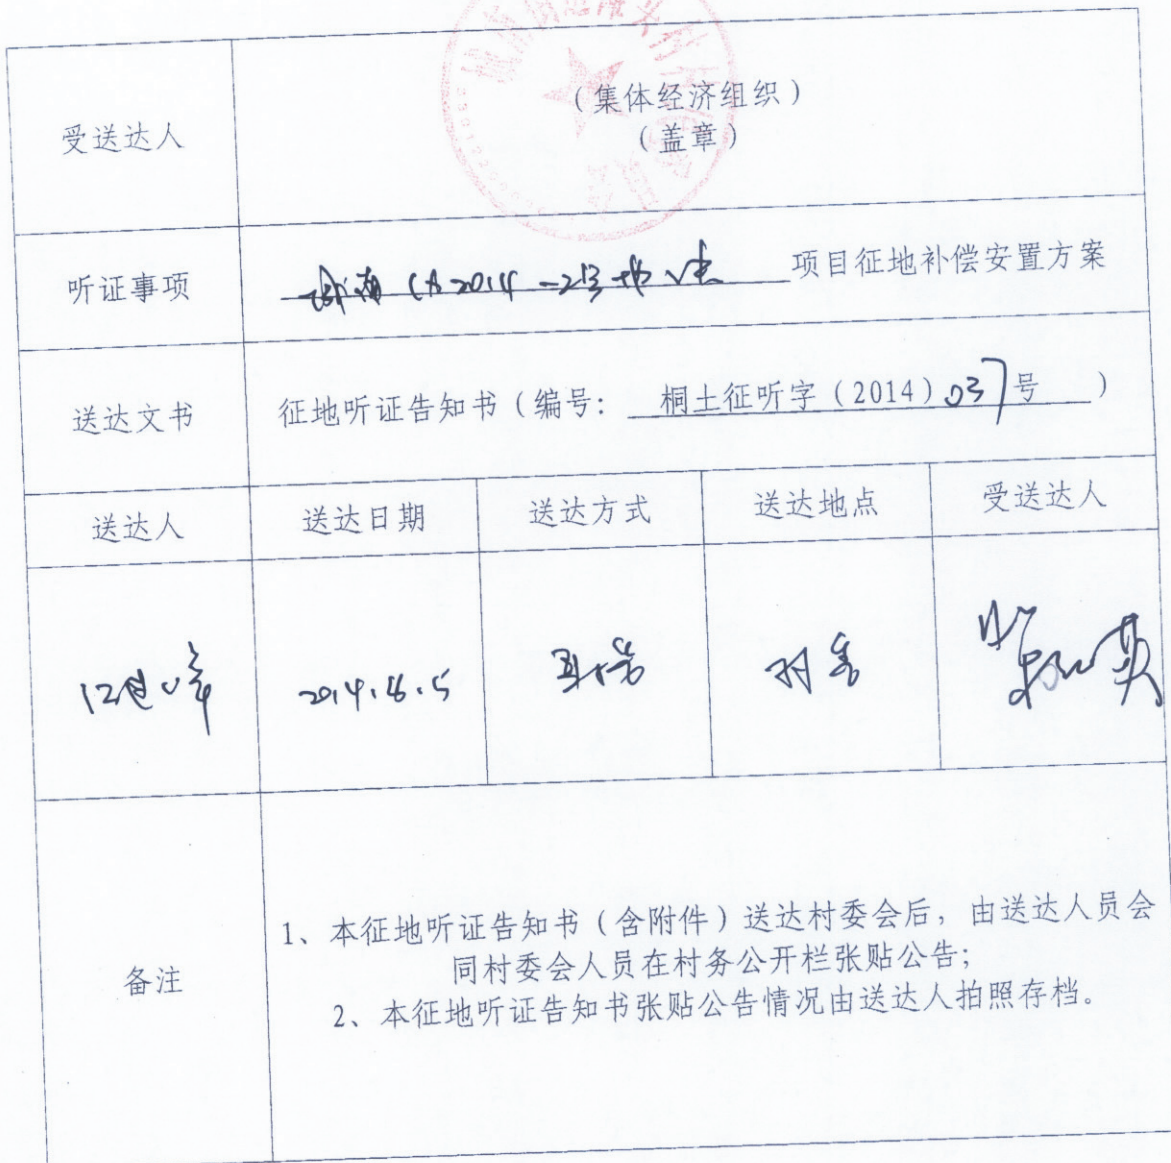 受送达人
(集体经济组织)
(盖章)
听证事项
2014-2号地块 项目征地补偿安置方案
送达文书
征地听证告知书(编号: 桐土征听字(2014)037号 )
送达人 送达日期 送达方式 送达地点 受送达人
2014.6.5
备注
1、本征地听证告知书(含附件)送达村委会后,由送达人员会
同村委会人员在村务公开栏张贴公告;
2、本征地听证告知书张贴公告情况由送达人拍照存档。